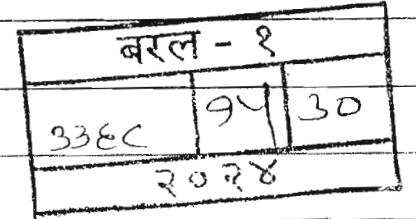 बरल - १
३३६८ १५ ३०
२०२४